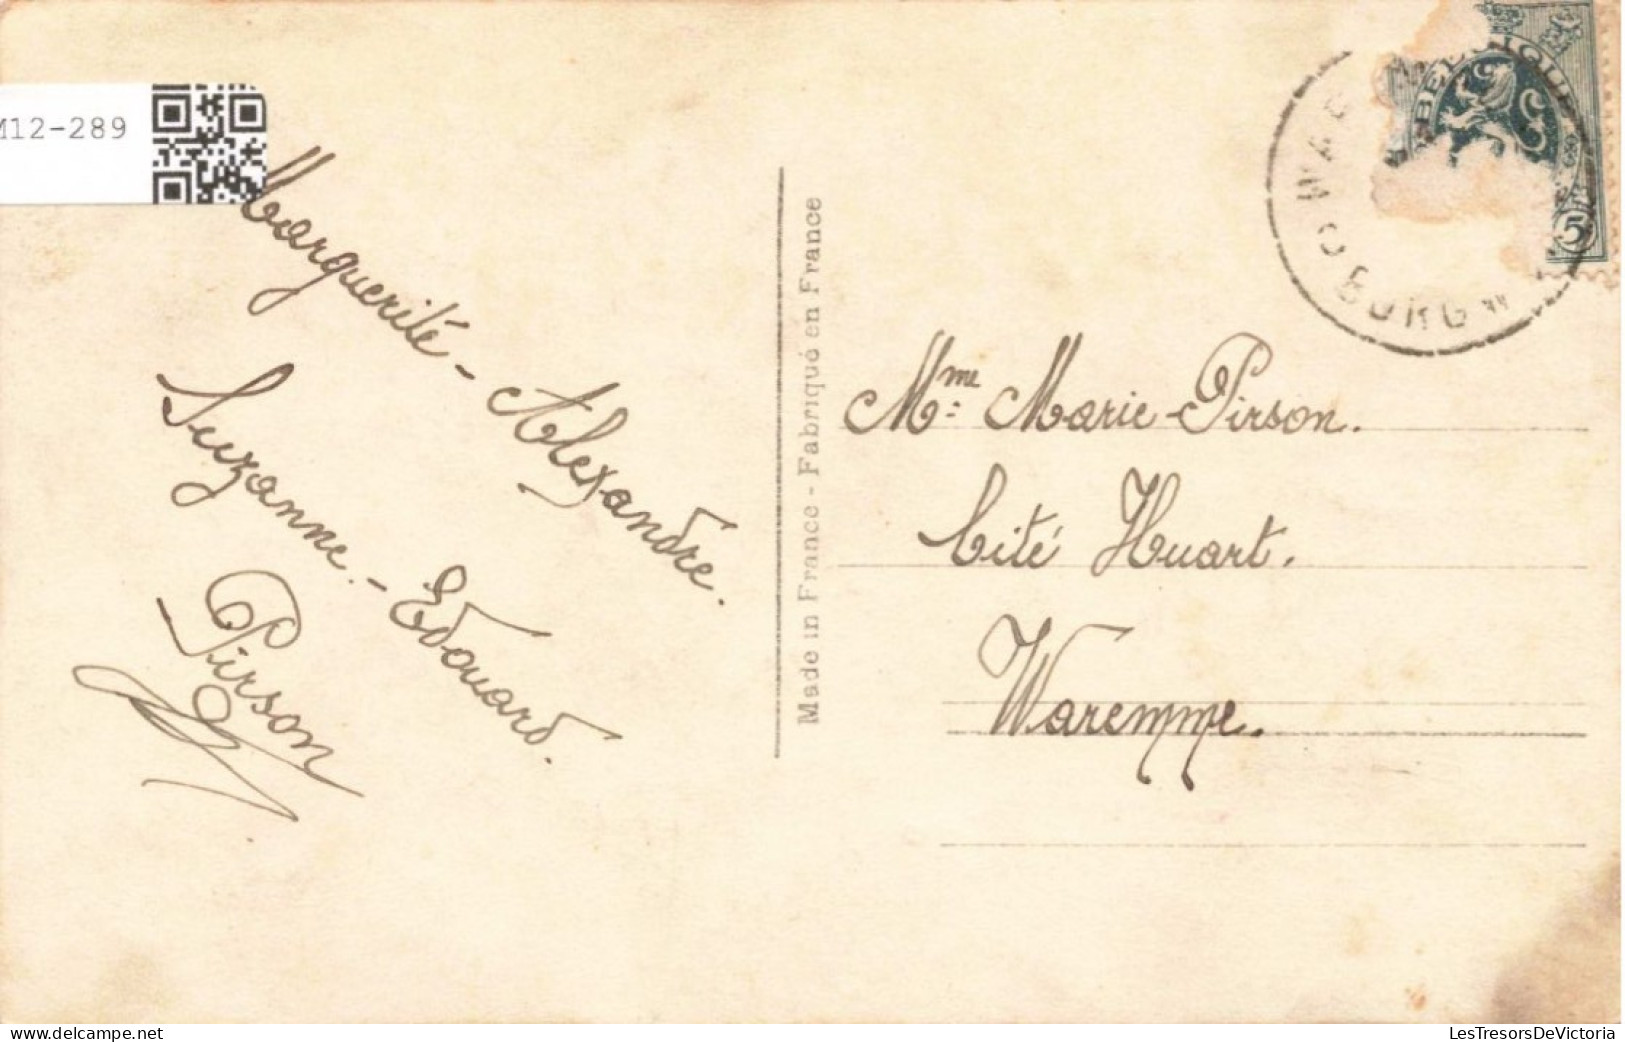 M12-289
Marguerite - Alexandre.
Suzanne. - Edouard.
Pirson
Made in France - Fabriqué en France
BELGIQUE
5
BORGW
Mme: Marie Pirson.
Cité Huart.
Waremme.
www.delcampe.net
LesTresorsDeVictoria